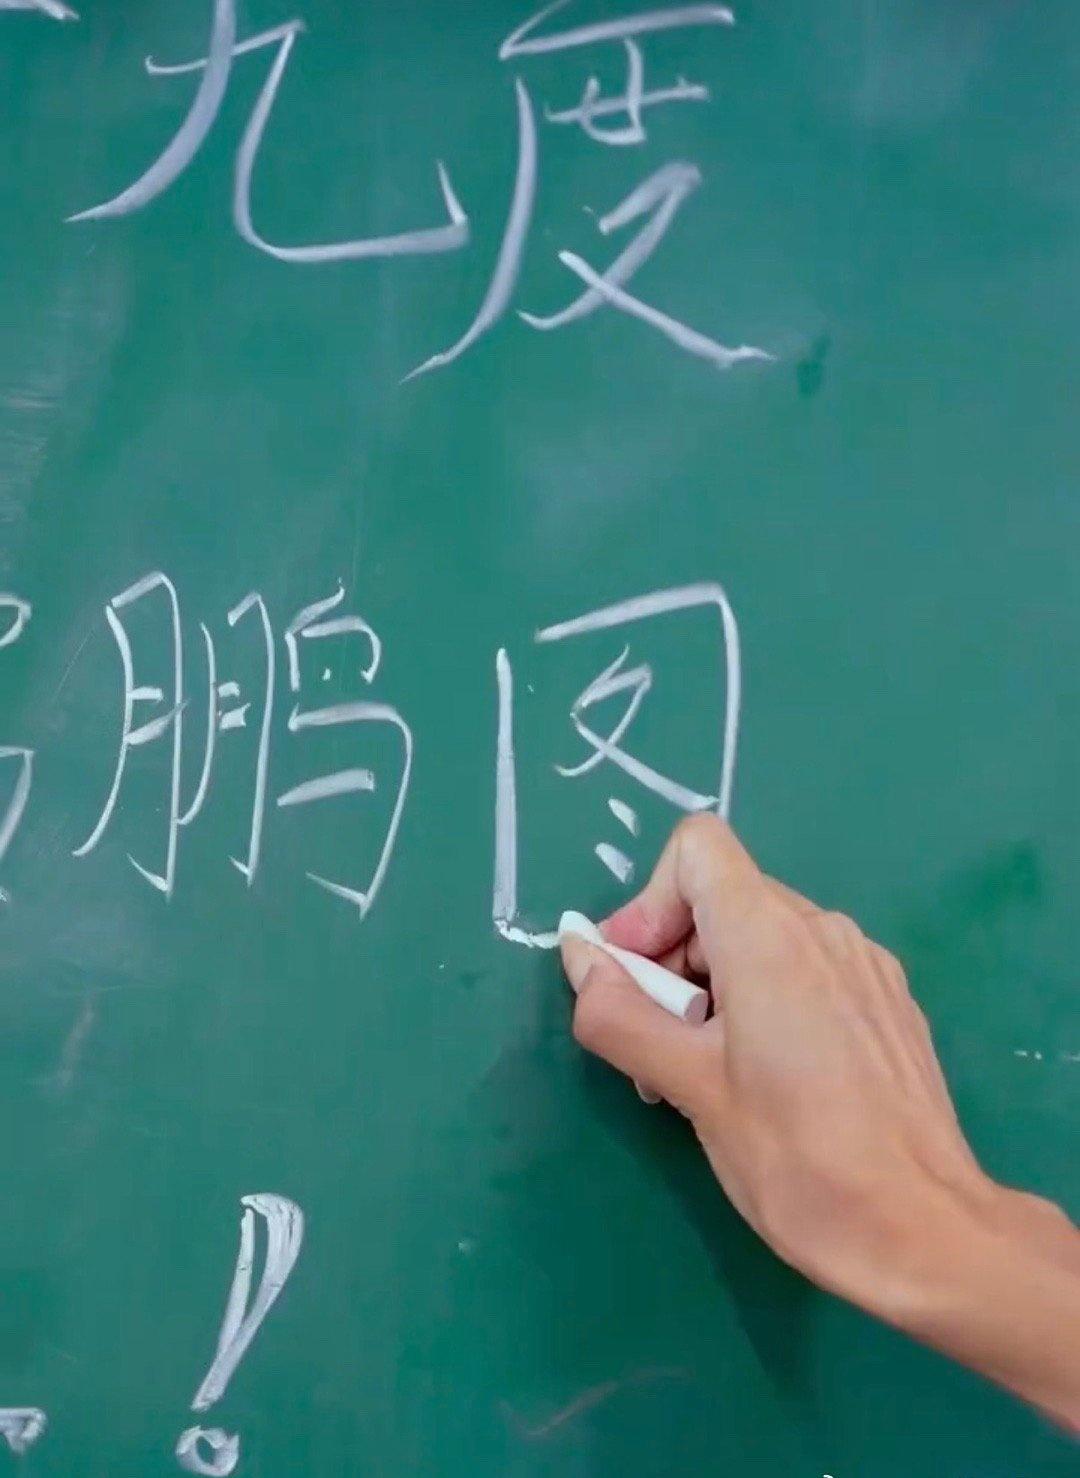 九度
鹏图
!